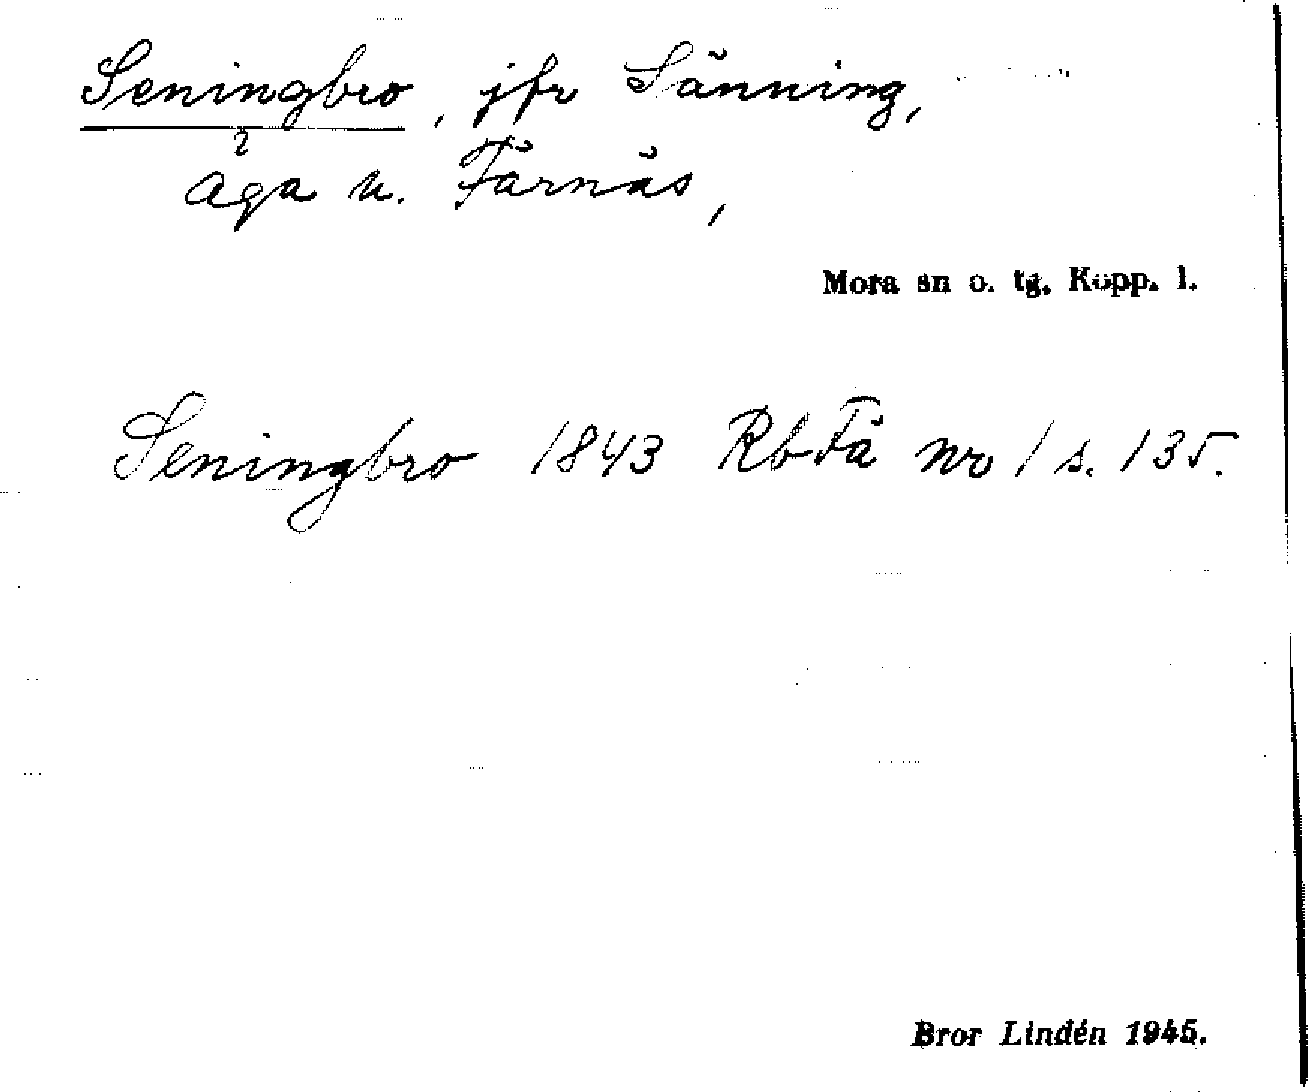 Seningbro, jfr Sänning,
äga u. Färnäs,
Mora sn o. tg. Kopp. l.
Seningbro 1843 RbFä nr 1 s. 135.
Bror Lindén 1945.